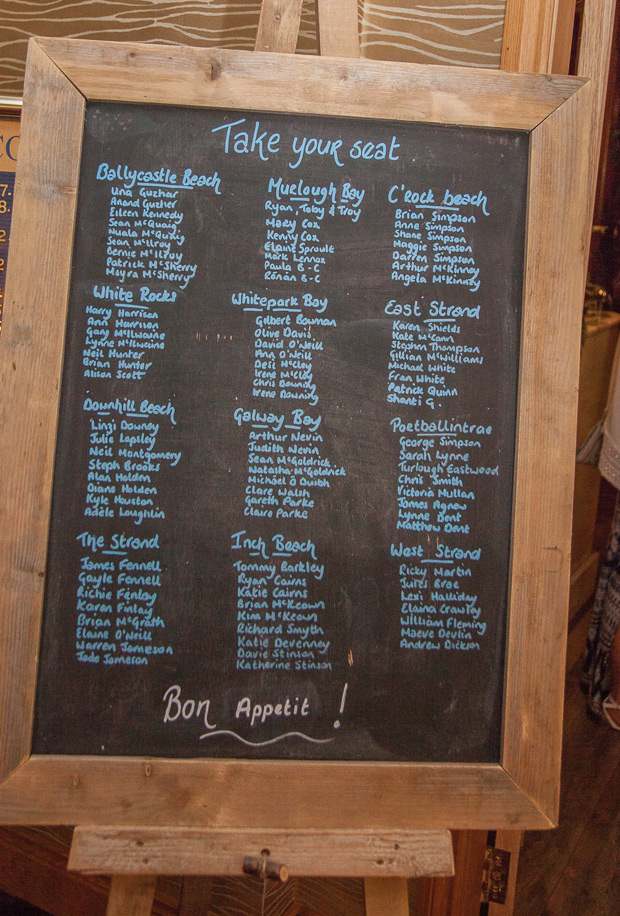 Take your seat
Ballycastle Beach
Una Guzhar
Anand Guzher
Eileen Kennedy
Sean McQuaig
Nuala McQuaig
Sean McIlroy
Bernie McIlroy
Patrick McSherry
Moyra McSherry
White Rocks
Harry Harrison
Ann Harrison
Gary McIlwaine
Lynne McIlwaine
Neil Hunter
Brian Hunter
Alison Scott
Downhill Beach
Linzi Downey
Julie Lapsley
Neil Montgomery
Steph Brooks
Alan Holden
Diane Holden
Kyle Houston
Adele Loughlin
The Strand
James Fennell
Gayle Fennell
Richie Finlay
Karen Finlay
Brian McGrath
Elaine O'Neill
Warren Jameson
Jade Jameson
Murlough Bay
Ryan, Toby & Troy
Mary Cox
Kenny Cox
Elaine Sproule
Mark Lennox
Paula B-C
Ronan B-C
Whitepark Bay
Gilbert Bowman
Olive Davis
David O'Neill
Ann O'Neill
Desi McCloy
Irene McCloy
Chris Downing
Irene Downing
Galway Bay
Arthur Nevin
Judith Nevin
Sean McGoldrick
Natasha McGoldrick
Michael O Duibh
Clare Walsh
Gareth Parke
Claire Parke
Inch Beach
Tommy Barkley
Ryan Cairns
Katie Cairns
Brian McKeown
Kim McKeown
Richard Smyth
Katie Devenney
Davie Stinson
Katherine Stinson
C'rock beach
Brian Simpson
Anne Simpson
Shane Simpson
Maggie Simpson
Darren Simpson
Arthur McKinney
Angela McKinney
East Strand
Karen Shields
Kate McCann
Stephen Thompson
Gillian McWilliams
Michael White
Fran White
Patrick Quinn
Shanti G.
Portballintrae
George Simpson
Sarah Lynne
Turlough Eastwood
Chris Smith
Victoria Mullan
James Agnew
Lynne Dent
Matthew Dent
West Strand
Ricky Martin
Jules Brae
Lexi Halliday
Elaina Crawley
William Fleming
Maeve Devlin
Andrew Dickson
Bon Appetit !